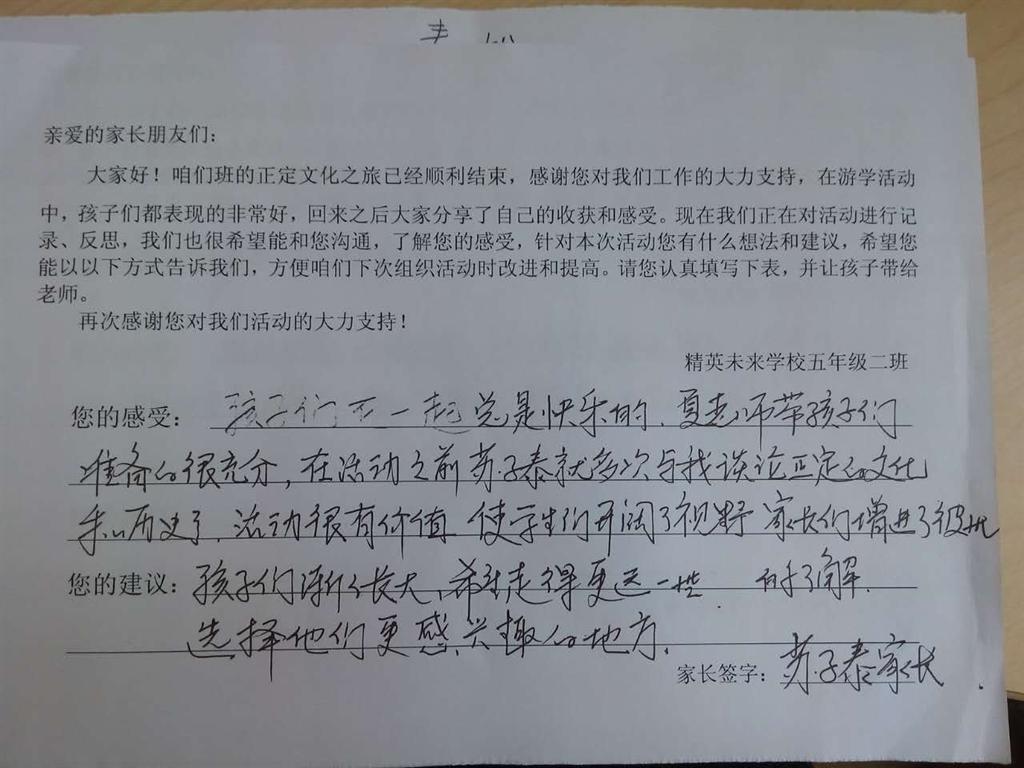 亲爱的家长朋友们：
大家好！咱们班的正定文化之旅已经顺利结束，感谢您对我们工作的大力支持，在游学活动
中，孩子们都表现的非常好，回来之后大家分享了自己的收获和感受。现在我们正在对活动进行记
录、反思，我们也很希望能和您沟通，了解您的感受，针对本次活动您有什么想法和建议，希望您
能以以下方式告诉我们，方便咱们下次组织活动时改进和提高。请您认真填写下表，并让孩子带给
老师。
再次感谢您对我们活动的大力支持！
精英未来学校五年级二班
您的感受：孩子们在一起总是快乐的，夏老师带孩子们
准备的很充分，在活动之前苏子泰就多次与我谈论正定的文化
和历史了，活动很有价值，使学生们开阔了视野，家长们增进了彼此
的了解。
您的建议：孩子们渐渐长大，希望走得更远一些，
选择他们更感兴趣的地方。
家长签字：苏子泰家长